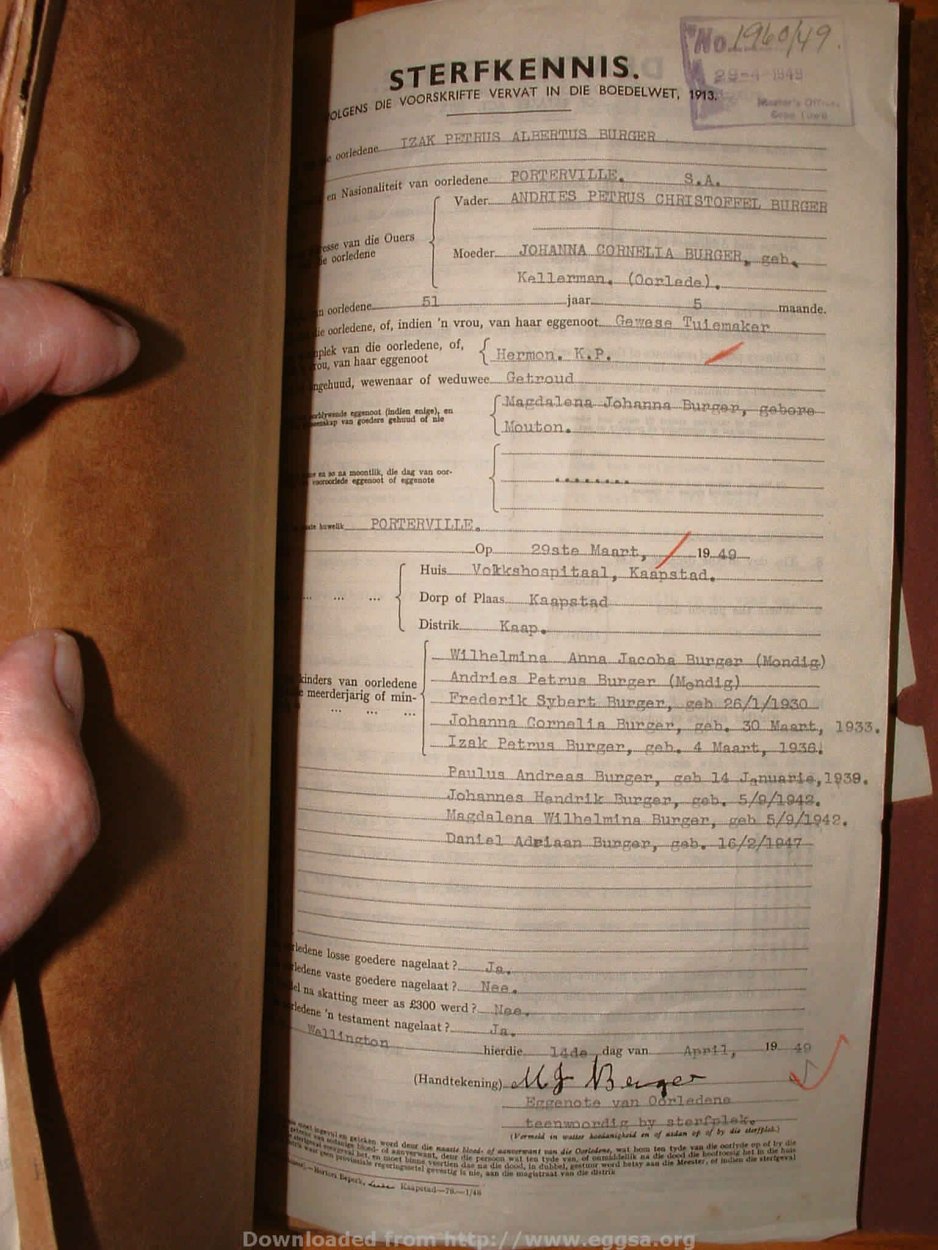 No. 1960/49.
29-4-1949
Master's Office
Cape Town
STERFKENNIS.
VOLGENS DIE VOORSKRIFTE VERVAT IN DIE BOEDELWET, 1913.
oorledene IZAK PETRUS ALBERTUS BURGER
en Nasionaliteit van oorledene PORTERVILLE. S.A.
Vader ANDRIES PETRUS CHRISTOFFEL BURGER
esse van die Ouers
oorledene
Moeder JOHANNA CORNELIA BURGER, geb.
Kellerman. (Oorlede).
oorledene 51 jaar 5 maande.
die oorledene, of, indien 'n vrou, van haar eggenoot Gewese Tuiemaker
plek van die oorledene, of,
vrou, van haar eggenoot
Hermon. K.P.
ngehuud, wewenaar of weduwee Getroud
eggenoot (indien enige), en
van goedere gehuud of nie
Magdalena Johanna Burger, gebore
Mouton.
en so na moontlik, die dag van oor-
vooroorlede eggenoot of eggenote
........
huwelik PORTERVILLE.
Op 29ste Maart, 1949
Huis Volkshospitaal, Kaapstad.
... ... ... Dorp of Plaas Kaapstad
Distrik Kaap.
kinders van oorledene
meerderjarig of min-
... ... ...
Wilhelmina Anna Jacoba Burger (Mondig)
Andries Petrus Burger (Mondig)
Frederik Sybert Burger, geb 26/1/1930
Johanna Cornelia Burger, geb. 30 Maart, 1933.
Izak Petrus Burger, geb. 4 Maart, 1936.
Paulus Andreas Burger, geb 14 Januarie, 1939.
Johannes Hendrik Burger, geb. 5/9/1942.
Magdalena Wilhelmina Burger, geb 5/9/1942.
Daniel Adriaan Burger, geb. 16/2/1947
oorledene losse goedere nagelaat? Ja.
oorledene vaste goedere nagelaat? Nee.
del na skatting meer as £300 werd? Nee.
oorledene 'n testament nagelaat? Ja.
Wellington hierdie 14de dag van April, 1949
(Handtekening) M J Burger
Eggenote van Oorledene
teenwoordig by sterfplek.
(Vermeld in watter hoedanigheid en of aldan op of by die sterfplek.)
moet ingevul en geteken word deur die naaste bloed- of aanverwant van die Oorledene, wat hom ten tyde van die oorlyde op of by die
Kaapstad—70—1/48
Downloaded from http://www.eggsa.org